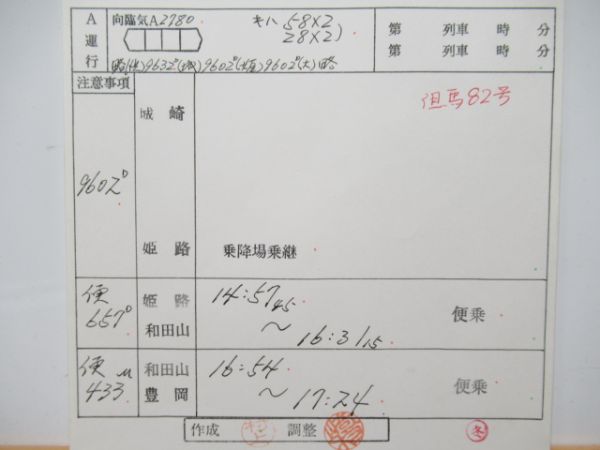 A運行
向臨気A2780
キハ 58×2
28×2)
第 列車 時 分
第 列車 時 分
9632D(城)9602D(姫)9602D(大)略
注意事項
城崎
但馬82号
9602D
姫路
乗降場乗継
便
657D
姫路
和田山
14:57 45
〜
16:31 15
便乗
便 M
433
和田山
豊岡
16:54
〜
17:24
便乗
作成
調整
冬